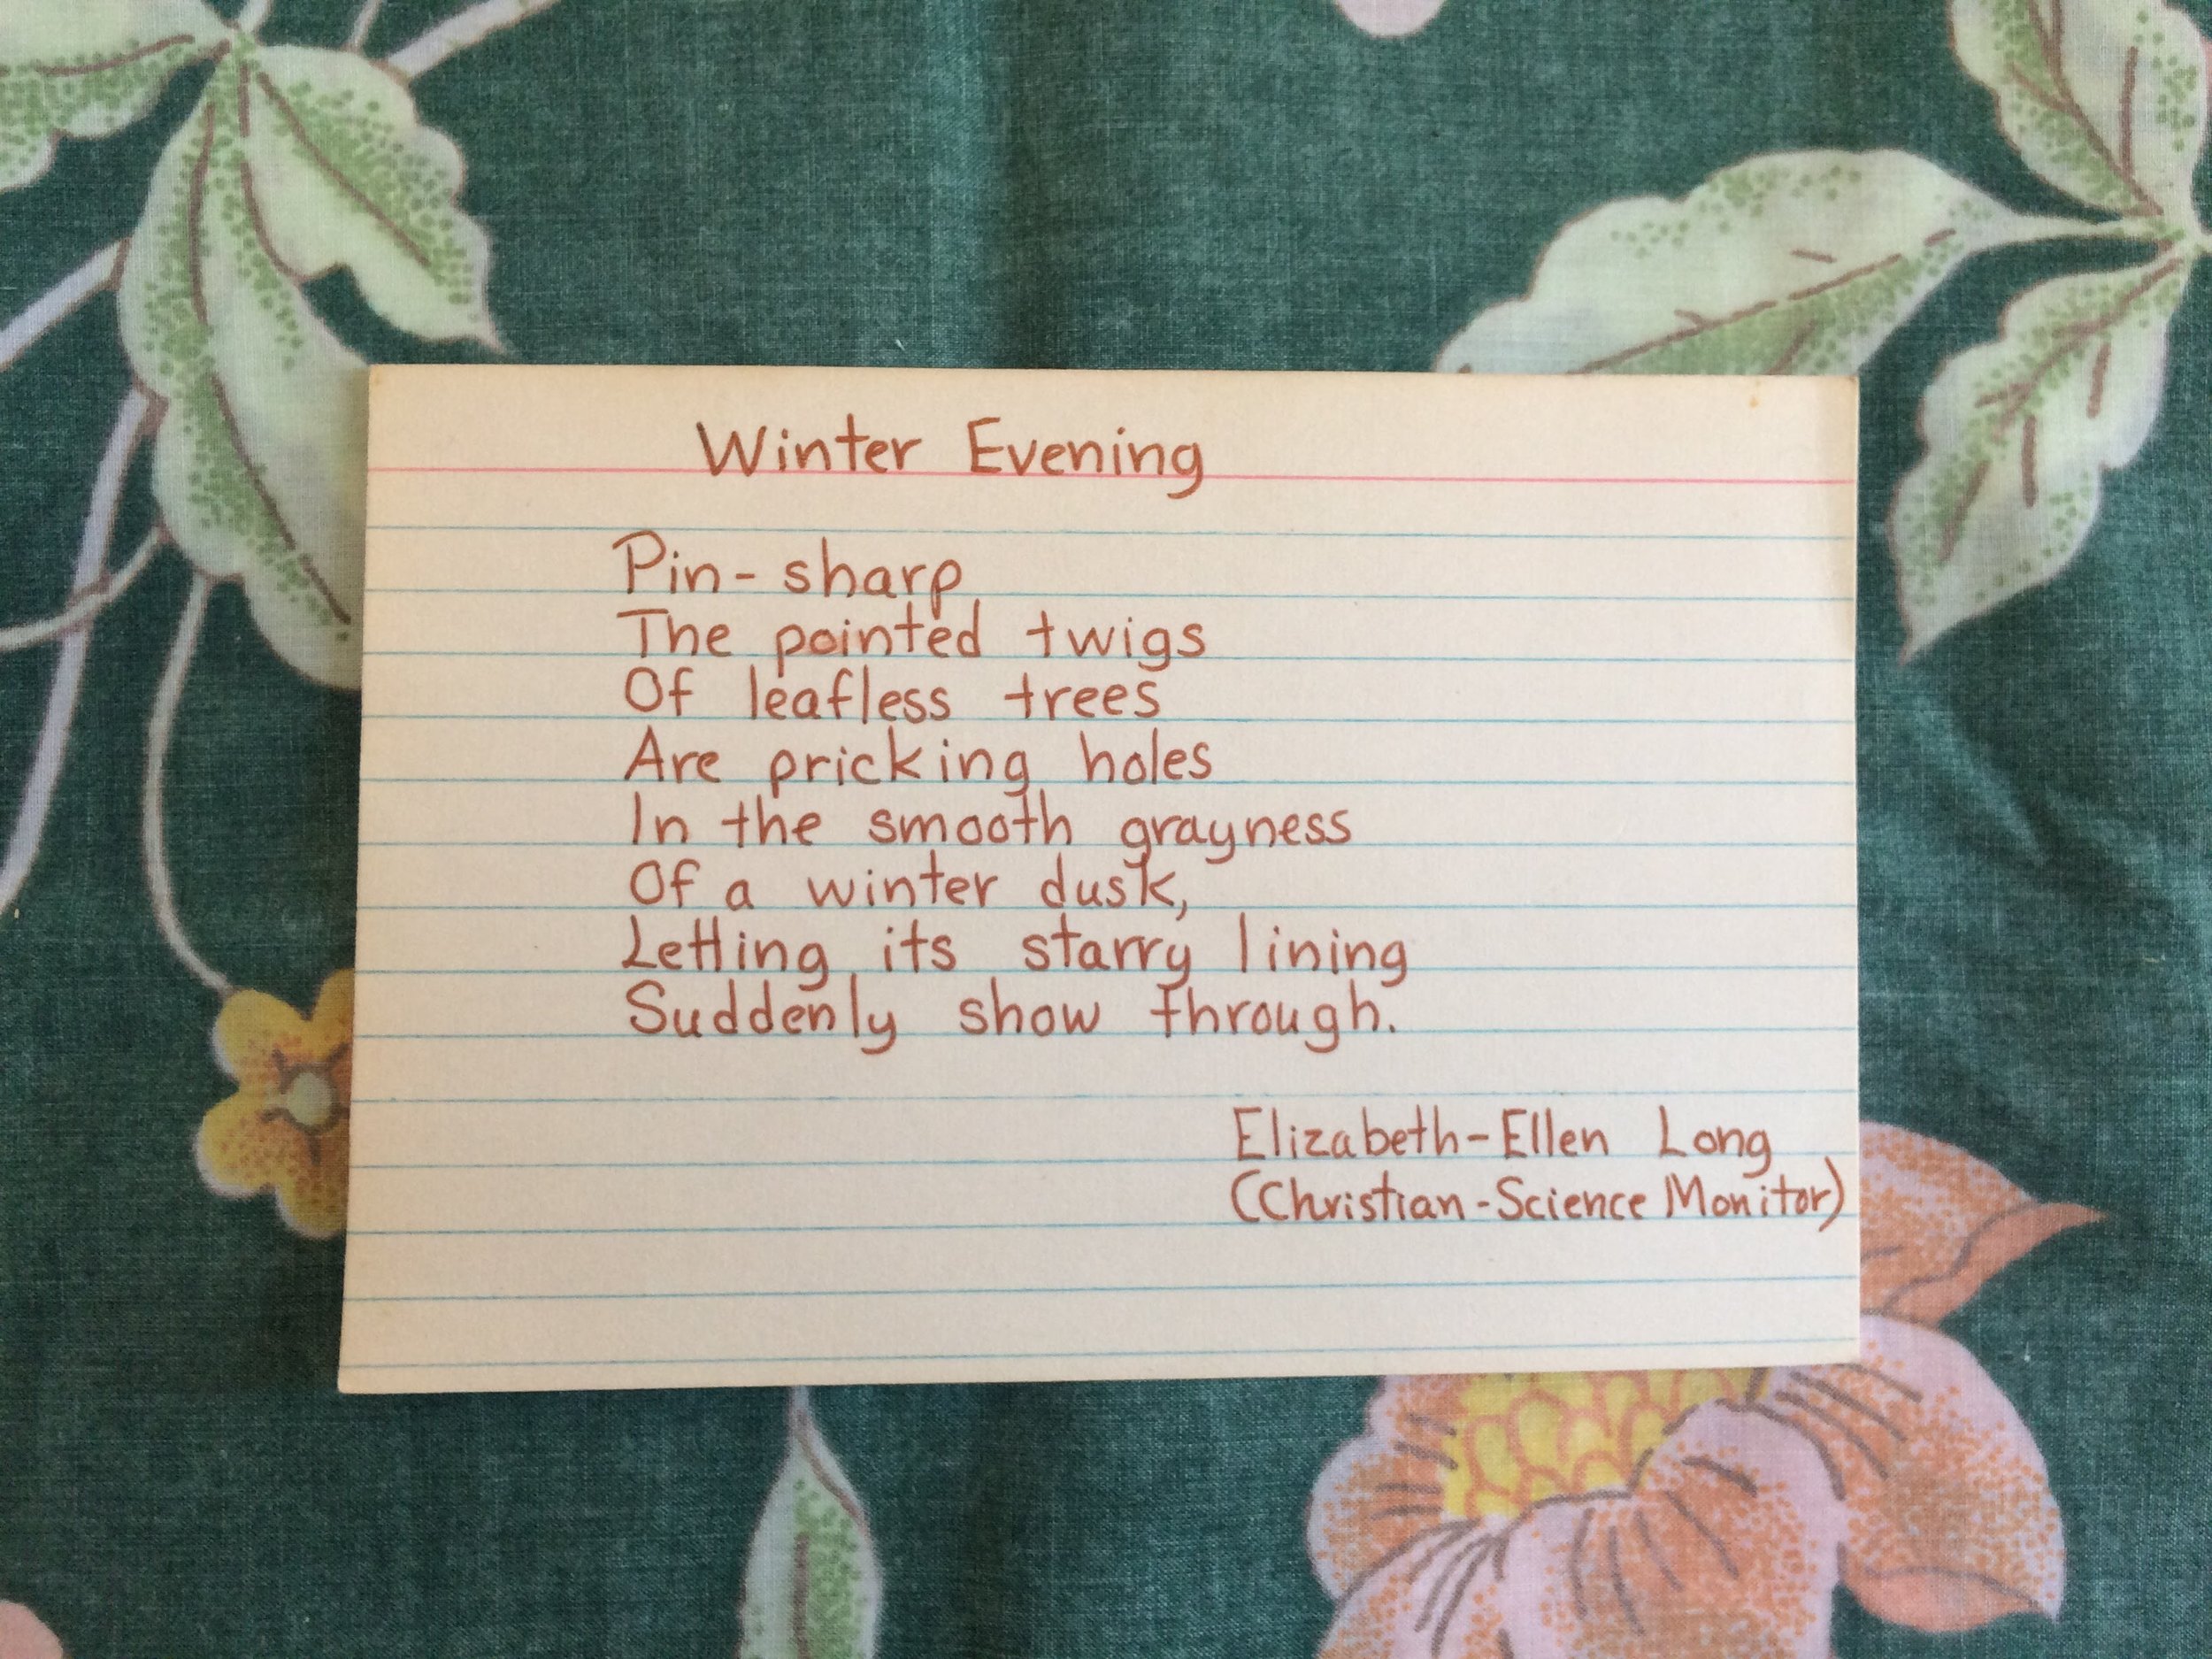 Winter Evening
Pin-sharp
The pointed twigs
Of leafless trees
Are pricking holes
In the smooth grayness
Of a winter dusk,
Letting its starry lining
Suddenly show through.
Elizabeth-Ellen Long
(Christian-Science Monitor)